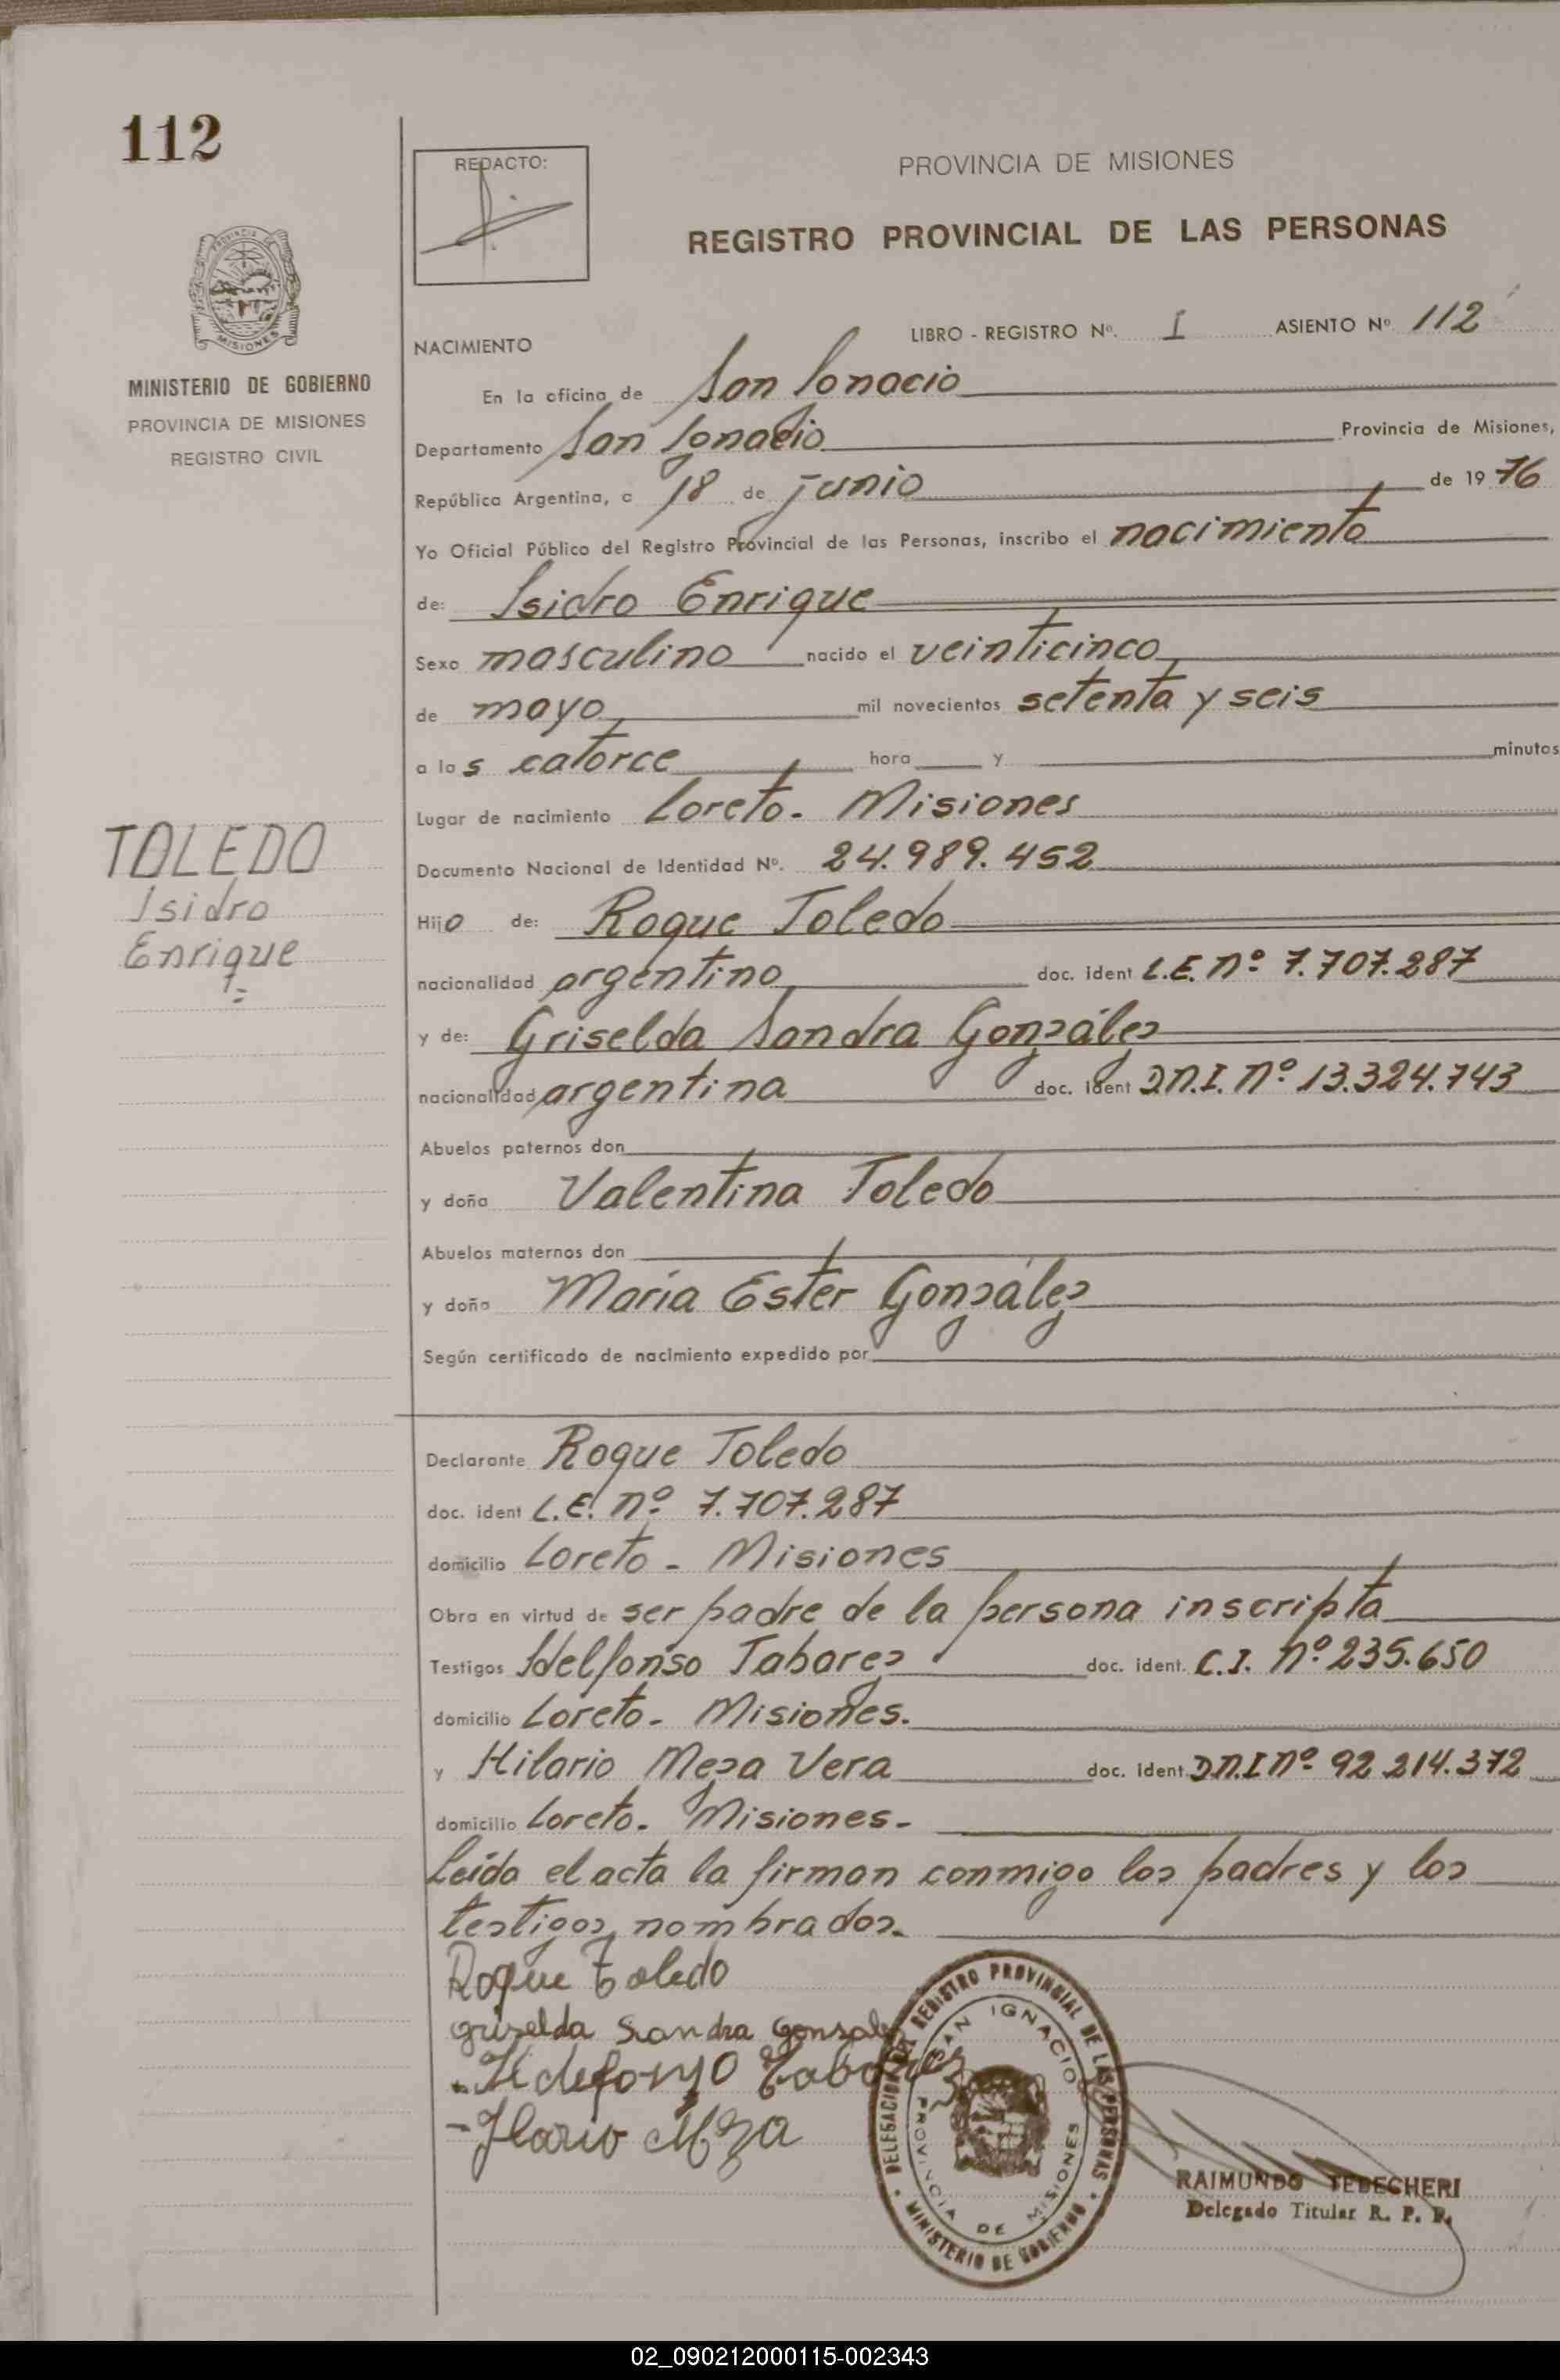 112
REDACTO:
PROVINCIA DE MISIONES
REGISTRO PROVINCIAL DE LAS PERSONAS
PROVINCIA DE
MISIONES
MINISTERIO DE GOBIERNO
PROVINCIA DE MISIONES
REGISTRO CIVIL
LIBRO - REGISTRO Nº. I ASIENTO Nº 112
NACIMIENTO
En la oficina de San Ignacio
Departamento San Ignacio Provincia de Misiones,
República Argentina, a 18 de junio de 19 76
Yo Oficial Público del Registro Provincial de las Personas, inscribo el nacimiento
de: Isidro Enrique
Sexo masculino nacido el veinticinco
de mayo mil novecientos setenta y seis
a las catorce hora y minutos
Lugar de nacimiento Loreto. Misiones
Documento Nacional de Identidad Nº. 24.989.452
TOLEDO
Isidro
Enrique
Hijo de: Roque Toledo
nacionalidad argentino doc. ident L.E. nº 7.707.287
y de: Griselda Sandra González
nacionalidad argentina doc. ident D.N.I. nº 13.324.743
Abuelos paternos don
y doña Valentina Toledo
Abuelos maternos don
y doña María Ester González
Según certificado de nacimiento expedido por
Declarante Roque Toledo
doc. ident L.E. nº 7.707.287
domicilio Loreto - Misiones
Obra en virtud de ser padre de la persona inscripta
Testigos Idelfonso Tabarez doc. ident. C.I. nº 235.650
domicilio Loreto - Misiones.
y Hilario Meza Vera doc. ident D.N.I nº 92 214.372
domicilio Loreto. Misiones-
Leída el acta la firman conmigo los padres y los
testigos nombrados.
Roque Toledo
Griselda Sandra Gonsalez
Ildefonso Tabarez
-Ilario Meza
DELEGACION DEL REGISTRO PROVINCIAL DE LAS PERSONAS
SAN IGNACIO
PROVINCIA DE MISIONES
MINISTERIO DE GOBIERNO
RAIMUNDO TEBECHERI
Delegado Titular R. P. P.
02_090212000115-002343